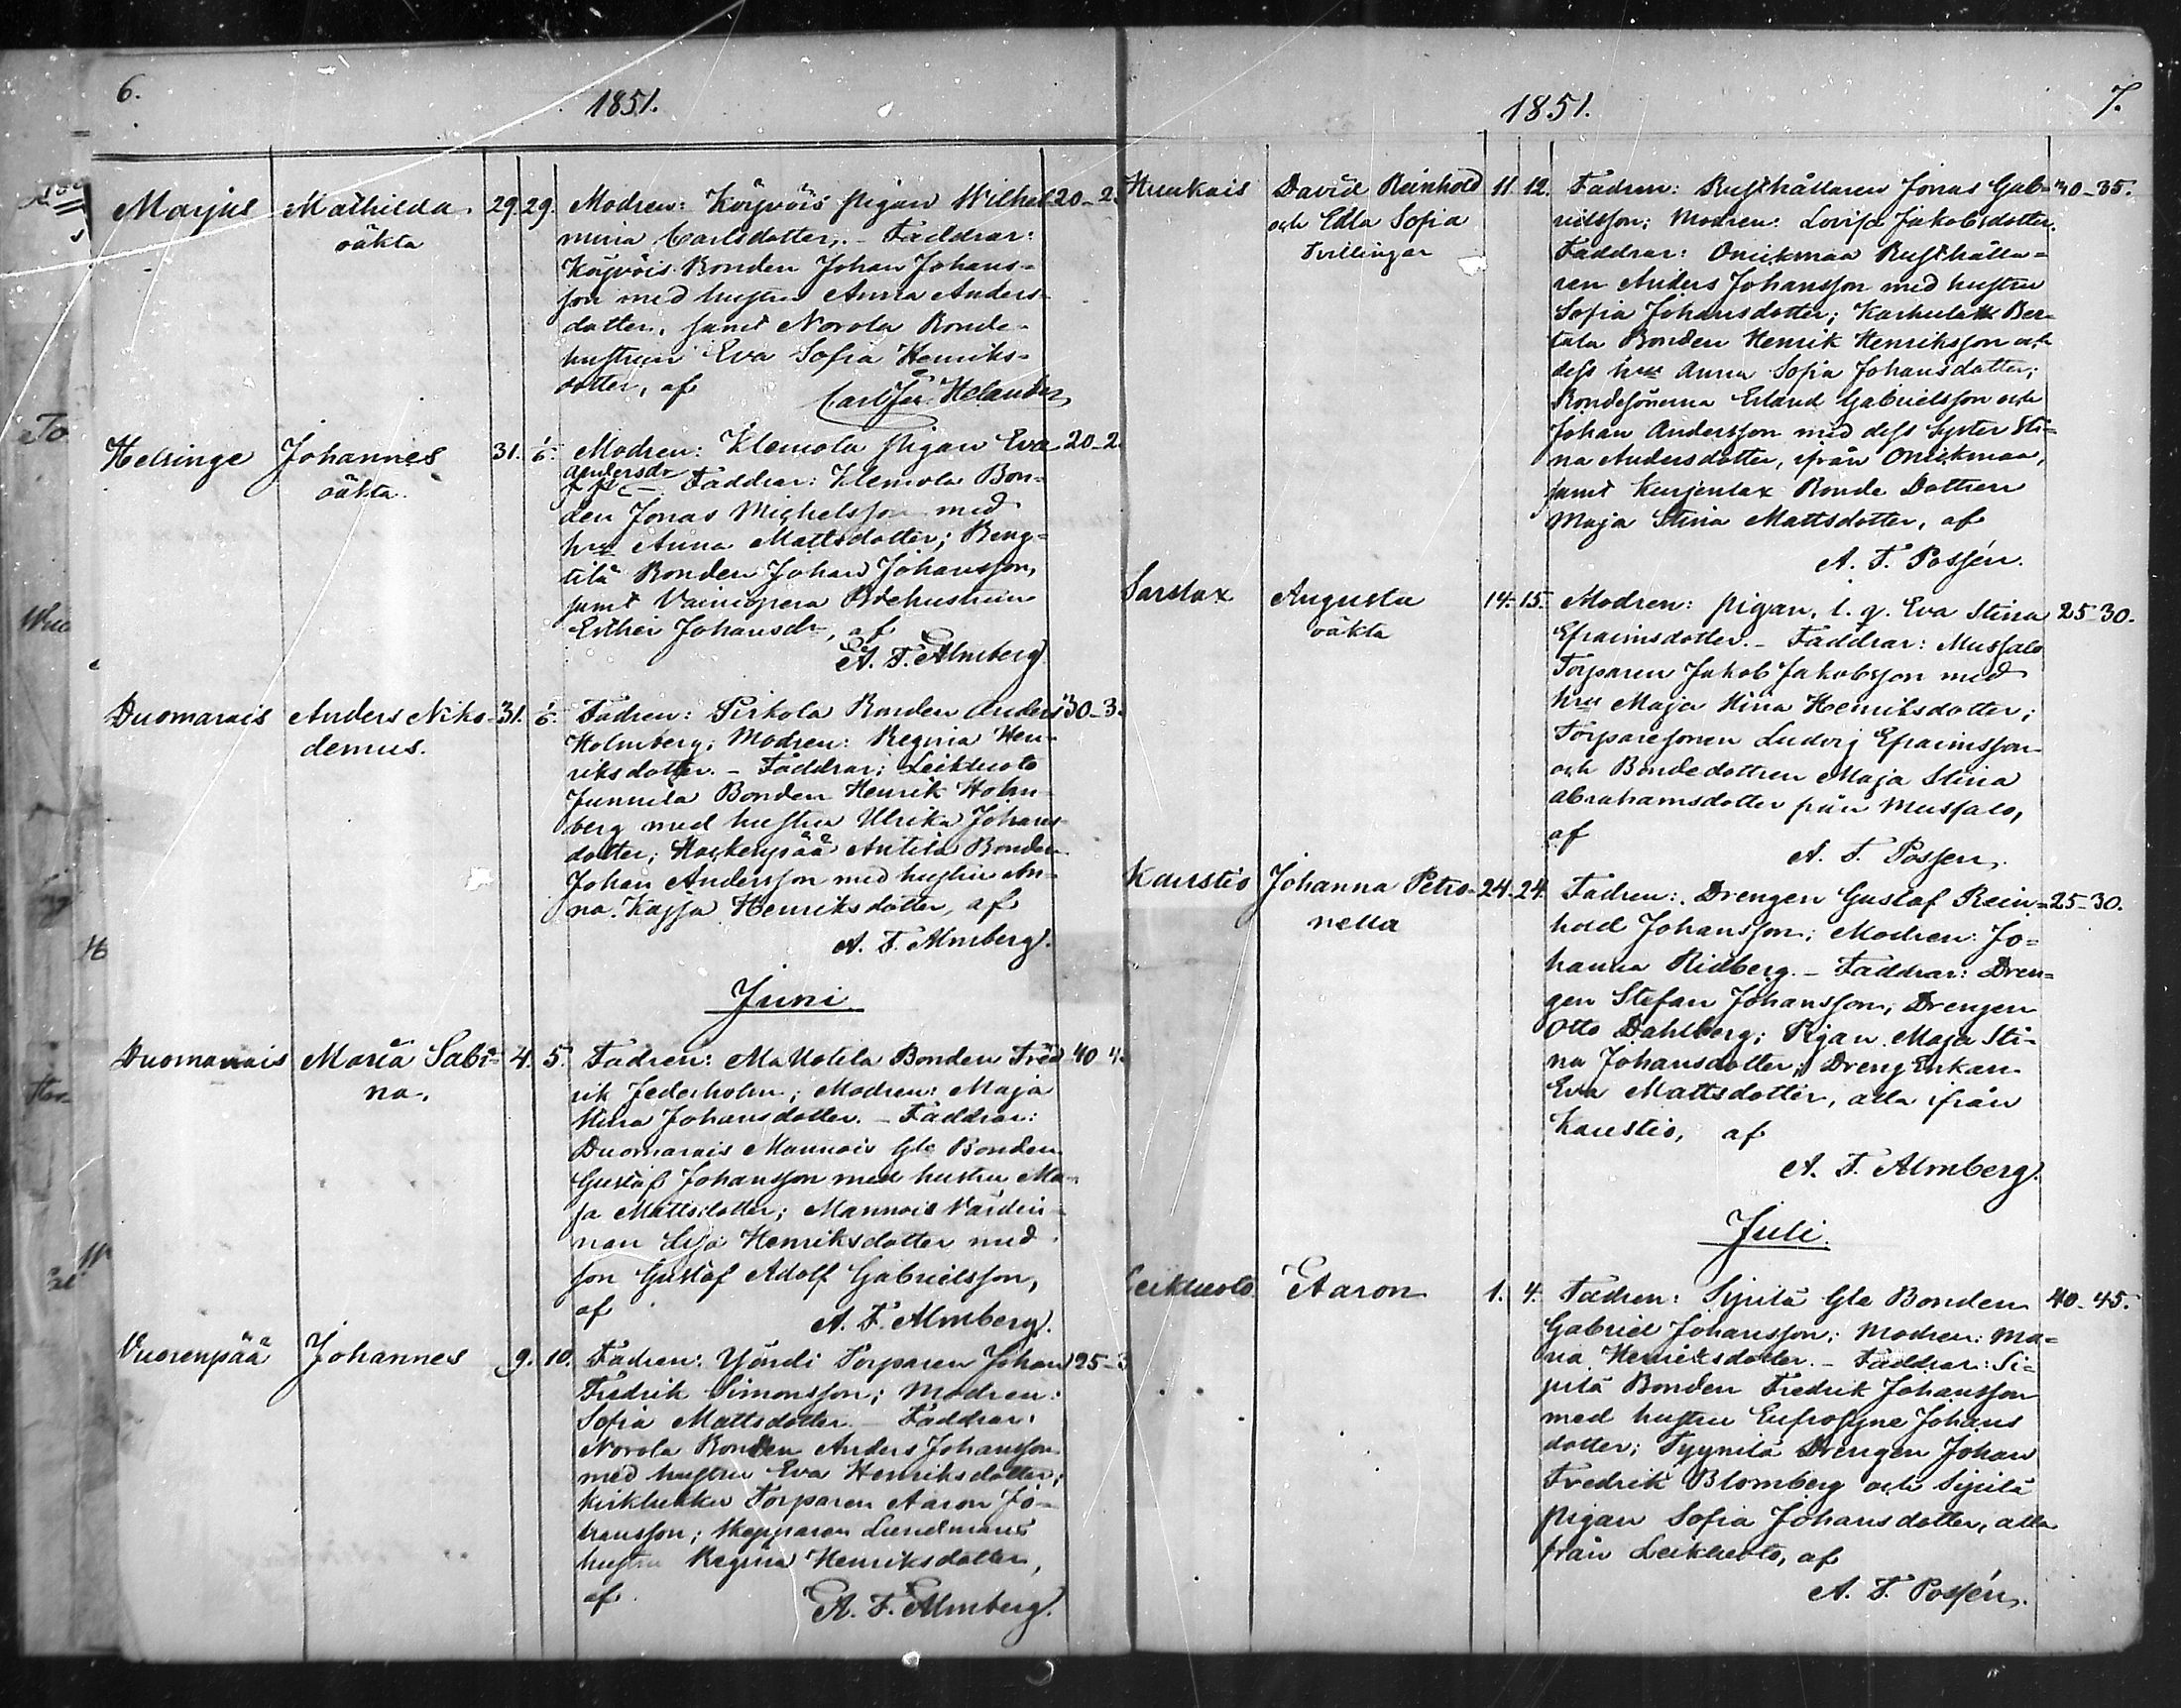 6.
1851.
Marjus Mathilda. 29. 29. Modren: Köyvöis pigan Wilhel- 20-2
oäkta mina Carlsdotter,. - Faddrar:
Köyvöis Bonden Johan Johans-
son med hustru Anna Anders-
dotter, samt Norola Bonde-
hustrun Eva Sofia Henriks-
dotter, af Carl Helander
Helsinge Johannes 31. 1/6. Modren: Klemola pigan Eva 20-2
oäkta. Andersdr Faddrar: Klemola Bon-
den Jonas Michelsson med
hru Anna Mattsdotter; Beng-
tilä Bonden Johan Johansson,
samt Vainiopera Bdehustrun
Esther Johansdr, af
A. F. Almberg
Duomarais Anders Niko- 31. 1/6. Fadren: Pirkola Bonden Anders 30-3
demus. Holmberg; Modren: Regina Hen-
riksdotter. - Faddrar: Leikluoto
Junnila Bonden Henrik Holm-
berg med hustru Ulrika Johans-
dotter; Haskenpää Antila Bonden
Johan Andersson med hustru An-
na Kajsa Henriksdotter, af
A. F. Almberg.
Juni
Duomarais Maria Sabi- 4. 5. Fadren: Mattotila Bonden Fred- 40 4
na. rik Jederholm; Modren: Maja
Stina Johansdotter. - Faddrar:
Duomarais Mannois Gle Bonden
Gustaf Johansson med hustru Ma-
ja Mattsdotter; Mannois Värdin-
nan Lisa Henriksdotter med
son Gustaf Adolf Gabrielsson,
af A. F. Almberg.
Vuorenpää Johannes 9. 10. Fadren: Yöndi Torparen Johan 25-3
Fredrik Simonsson; Modren:
Sofia Mattsdotter. - Faddrar:
Norola Bonden Anders Johansson
med hustru Eva Henriksdotter;
Kirklukko Torparen Aaron Jo-
hansson; Skepparen Lundmans
hustru Regina Henriksdotter,
af A. F. Almberg.
1851. 7.
Hunkais David Reinhold 11. 12. Fadren: Rusthållaren Jonas Gab- 30-35.
och Edla Sofia rielsson; Modren: Lovisa Jakobsdotter.
Tvillingar Faddrar: Onickmaa Rusthålla-
ren Anders Johansson med hustru
Sofia Johansdotter; Karhula Ber-
tala Bonden Henrik Henriksson och
dess hru Anna Sofia Johansdotter;
Bondesönerna Erland Gabrielsson och
Johan Andersson med dess Syster Sti-
na Andersdotter, ifrån Onickmaa,
samt Kurjenlax Bonde Dottren
Maja Stina Mattsdotter, af
A. F. Possén.
Sarslax Augusta 14. 15. Modren: pigan, l. q. Eva Stina 25-30.
oäkta Efraimsdotter. - Faddrar: Mussalo
Torparen Jakob Jakobsson med
hru Maja Stina Henriksdotter;
Torparesonen Ludvig Efraimsson
och Bondedottren Maja Stina
Abrahamsdotter från Mussalo,
af
A. F. Possén.
Kaustio Johanna Petro- 24. 24. Fadren: Drengen Gustaf Rein- 25-30.
nella hold Johansson; Modren: Jo-
hanna Ridberg. - Faddrar: Dren-
gen Stefan Johansson; Drengen
Otto Dahlberg; Pigan Maja Sti-
na Johansdotter; Dreng Enkan
Eva Mattsdotter, alla ifrån
Kaustio, af
A. F. Almberg.
Juli.
Leikluoto Aaron 1. 4. Fadren: Sipilä Gle Bonden 40-45.
Gabriel Johansson; Modren: Ma-
ria Henriksdotter. - Faddrar: Si-
pilä Bonden Fredrik Johansson
med hustru Eufrosyne Johans
dotter; Tyynilä Drengen Johan
Fredrik Blomberg och Sipilä
pigan Sofia Johansdotter, alla
från Leikluoto, af
A. F. Possén.